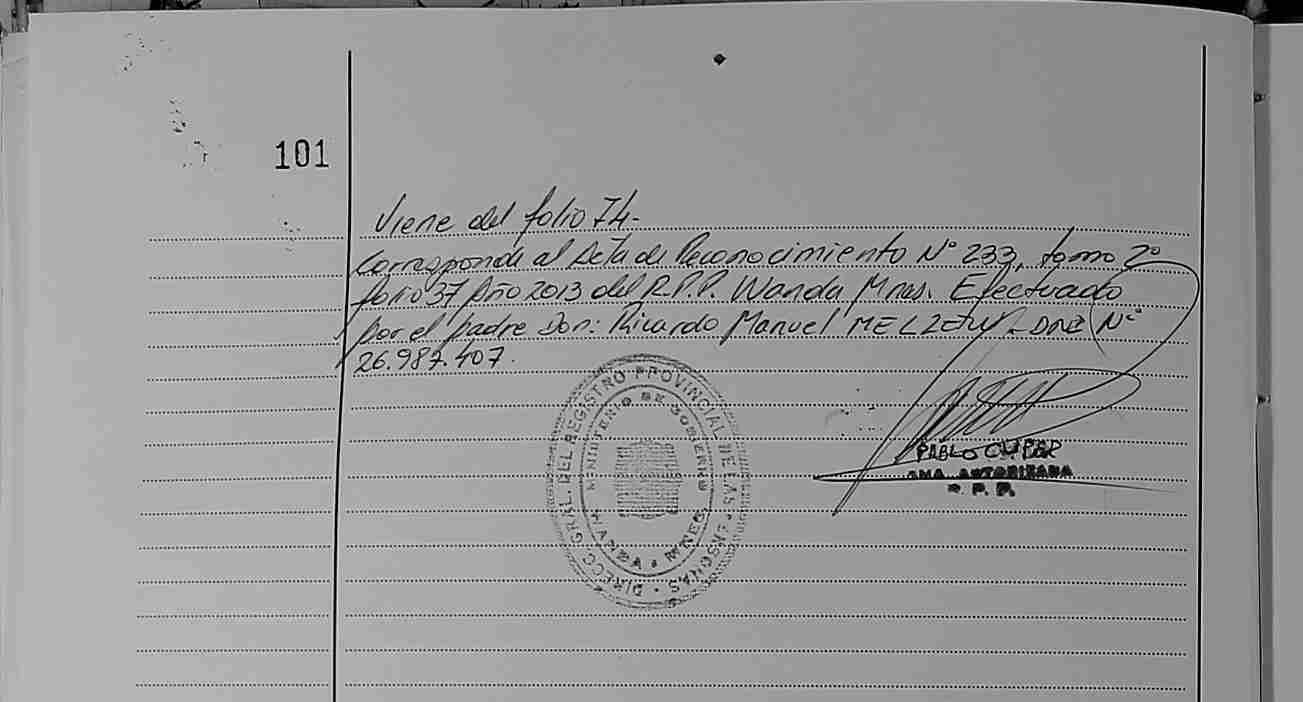 101
Viene del folio 74-
Corresponde al Acta de Reconocimiento N° 233, tomo 2°
folio 37 Año 2013 del R.P.P. Wanda Mnes. Efectuado
por el padre Don: Ricardo Manuel - DNI N°
26.987.407.
DIRECC. GRAL. DEL REGISTRO PROVINCIAL DE LAS PERSONAS
MINISTERIO DE GOBIERNO
WANDA • MNES.
PABLO
AUTORIZADA
R. P. P.